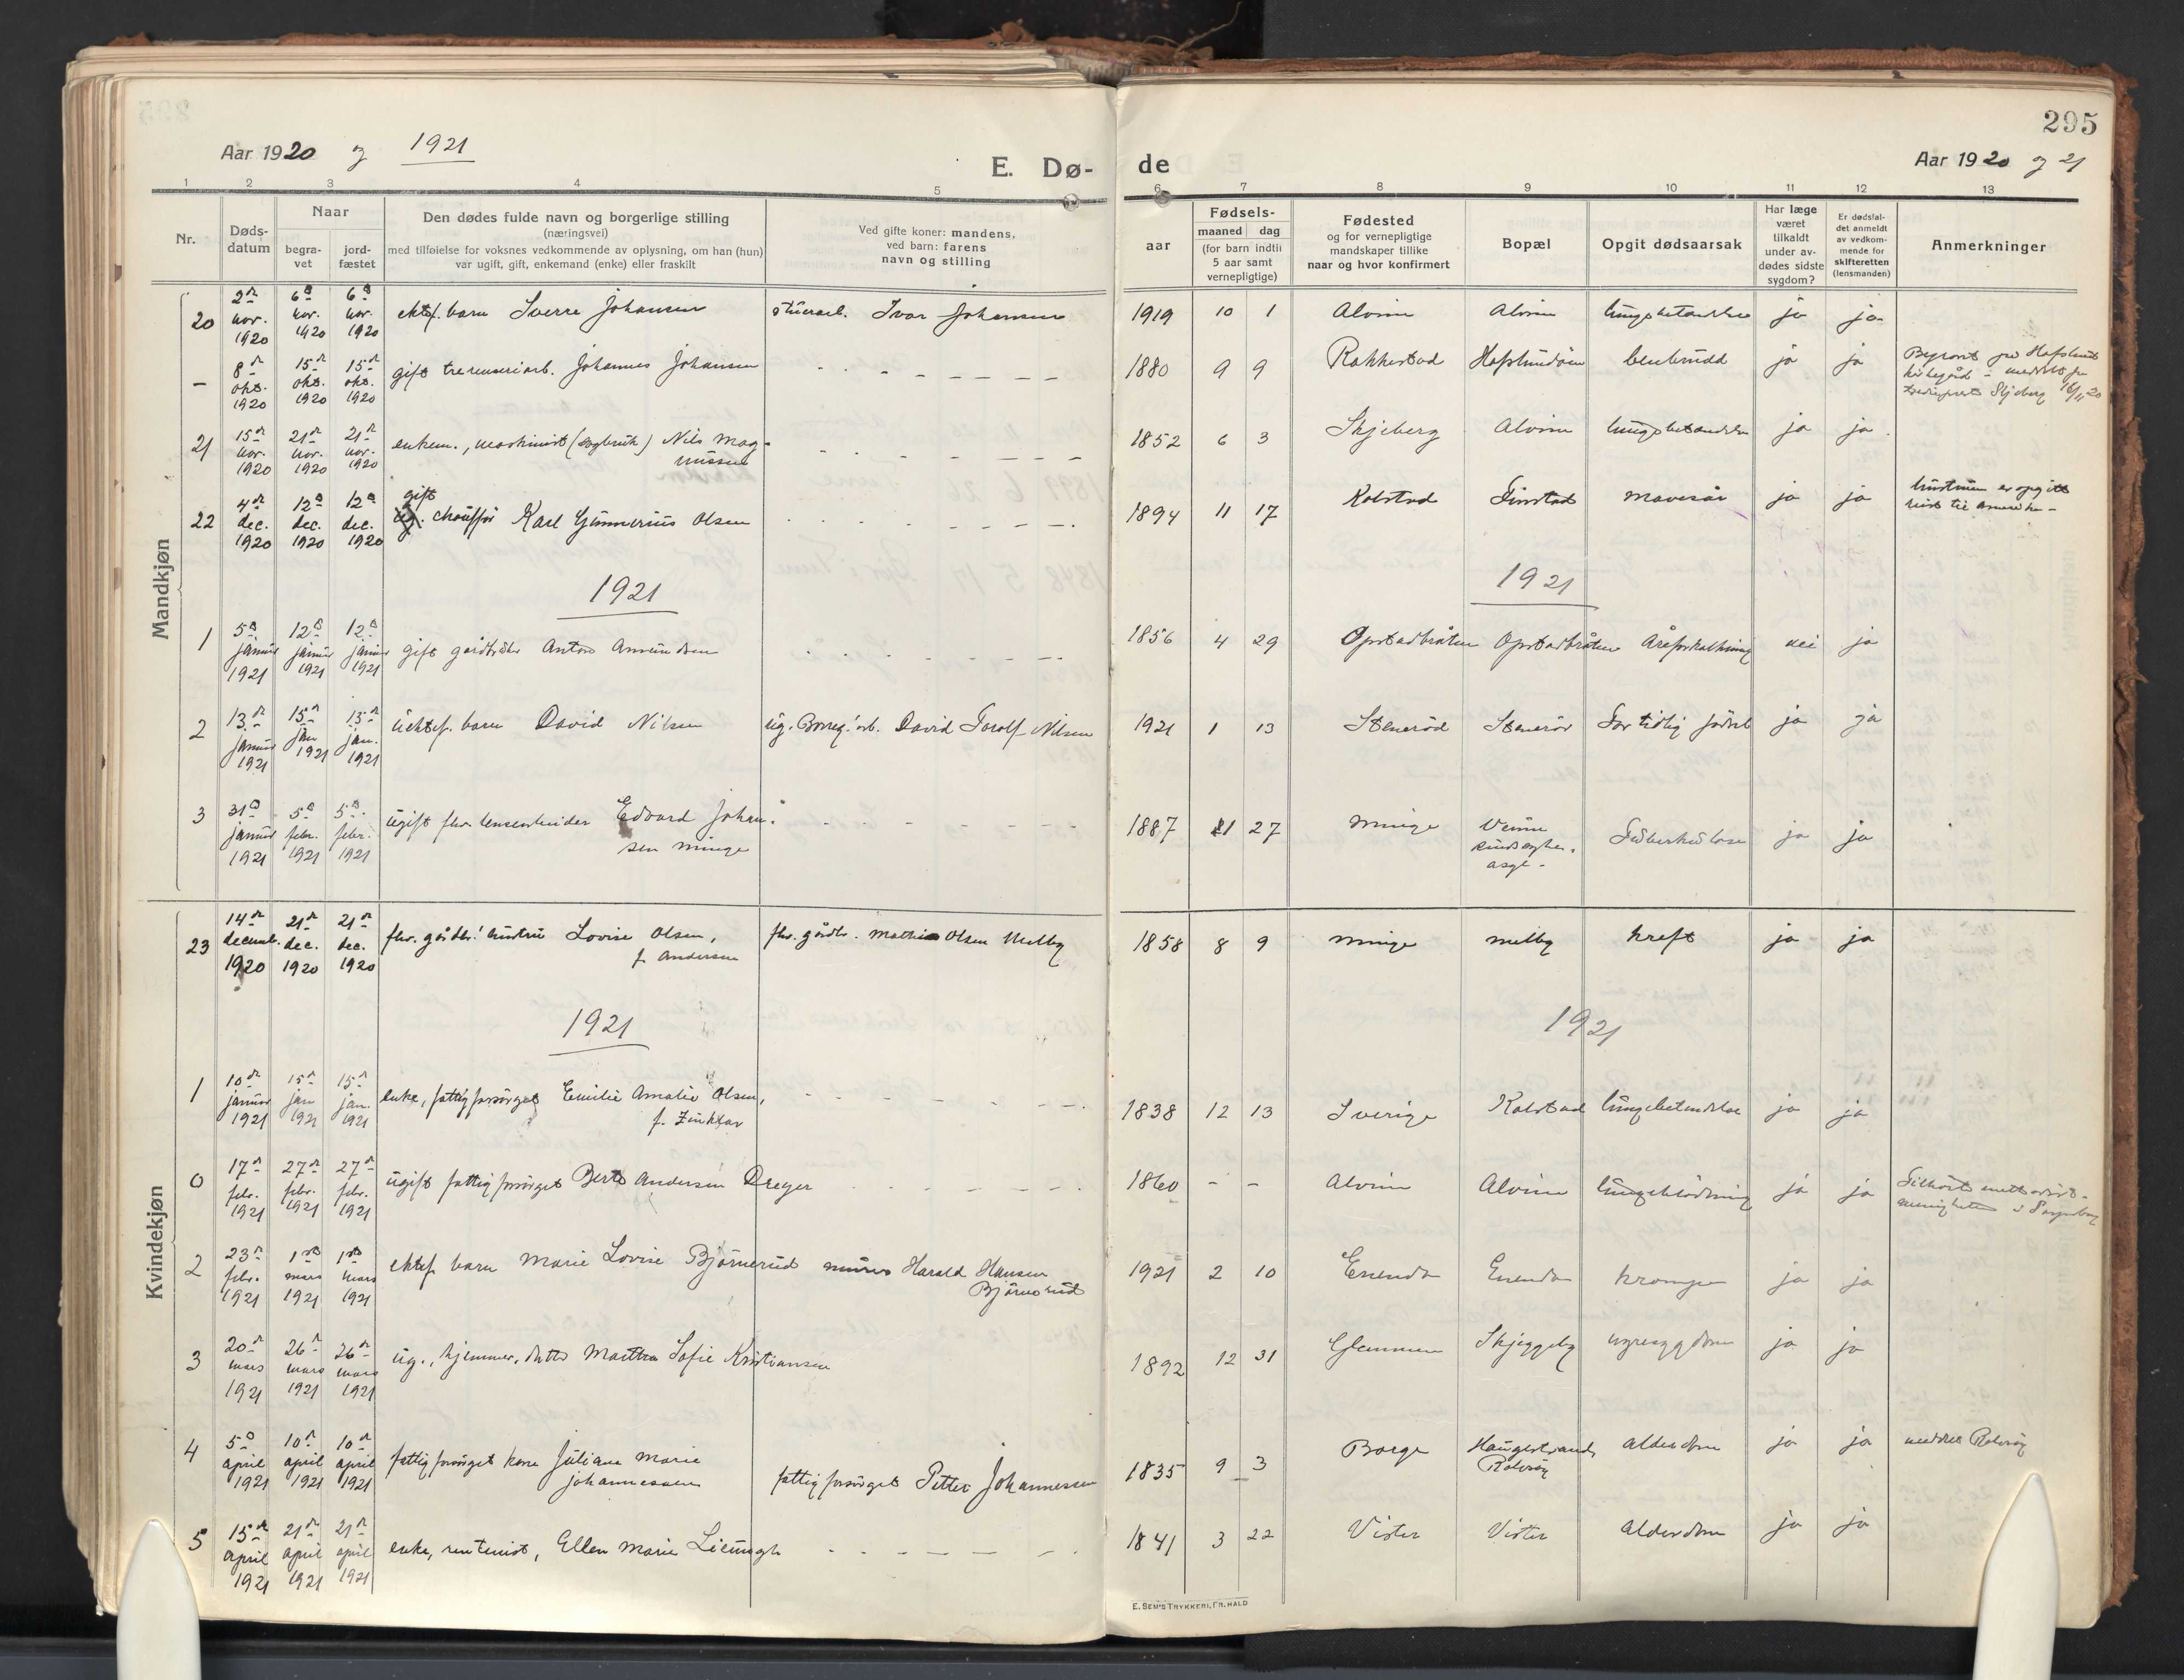 295
Aar 1920 og 1921
E. Dø-
de
Aar 1920 og 21
1 2 3 4 5 6 7 8 9 10 11 12 13
Nr.
Døds-
datum
Naar
begra-
vet
jord-
fæstet
Den dødes fulde navn og borgerlige stilling
(næringsvei)
med tilføielse for voksnes vedkommende av oplysning, om han (hun)
var ugift, gift, enkemand (enke) eller fraskilt
Ved gifte koner: mandens,
ved barn: farens
navn og stilling
Fødsels-
aar
maaned dag
(for barn indtil
5 aar samt
vernepligtige)
Fødested
og for vernepligtige
mandskaper tillike
naar og hvor konfirmert
Bopæl
Opgit dødsaarsak
Har læge
været
tilkaldt
under av-
dødes sidste
sygdom?
Er dødsfal-
det anmeldt
av vedkom-
mende for
skifteretten
(lensmanden)
Anmerkninger
Mandkjøn
20 2den nov. 1920 6te nov. 1920 6te nov. 1920 ektef. barn Sverre Johansen Ivar Johansen 1919 10 1 Alvim Alvim lungebetændelse ja ja
- 8de okt. 1920 15de okt. 1920 15de okt. 1920 gift Johannes Johansen 1880 9 9 Rakkestad Hafslundsøen benbrudd ja ja
21 15de nov. 1920 21de nov. 1920 21de nov. 1920 enkem., maskinist (sagbruk) Nils Mag-
nussen 1852 6 3 Skjeberg Alvim lungebetændelse ja ja
22 4de dec. 1920 12te dec. 1920 12te dec. 1920 gift
ug. chauffør Karl Gunnerius Olsen 1894 11 17 Kolstad Finstad mavesår ja ja hustruen er opgitt
reist til Amerika -
1921 1921
1 5te januar 1921 12te januar 1921 12te januar 1921 gift Anton Amundsen 1856 4 29 Opstadbråten Opstadbråten Åreforkalkning nei ja
2 13de januar 1921 15de jan 1921 15de jan. 1921 uektef. barn David Nilsen ug. Borreg. arb. David Torolf Nilsen 1921 1 13 Stenerød Stenerød For tidlig født ja ja
3 31te januar 1921 5te febr. 1921 5te febr. 1921 ugift fhv. lensearbeider Edvard Johan-
sen Minge 1887 11 27 Minge ja ja
Kvindekjøn
23 14de decemb. 1920 21de dec. 1920 21de dec. 1920 fhv. gårdbr. hustru Lovise Olsen,
f. Andersen fhv. gårdbr. Mathias Olsen Melby 1858 8 9 Minge Melby kreft ja ja
1921 1921
1 10de januar 1921 15de jan 1921 15de jan. 1921 enke, fattigforsørget Emilie Amalie Olsen, 1838 12 13 Sverige Kolstad lungebetændelse ja ja
0 17de febr. 1921 27de febr. 1921 27de febr. 1921 ugift fattigforsørget Berte Andersen Dreyer 1860 - - Alvim Alvim lungeblødning ja ja
2 23de febr. 1921 1ste mars 1921 1ste mars 1921 ektef. barn Marie Lovise Bjørnerud murer Harald Hansen
Bjørnerud 1921 2 10 Enenda Enenda krampe ja ja
3 20de mars 1921 26de mars 1921 26de mars 1921 ug., hjemmev. datter Martha Sofie Kristiansen 1892 12 31 Glemmen Skjeggeby nyresygdom ja ja
4 5te april 1921 10de april 1921 10de april 1921 fattigforsørget kone Juliane Marie
Johannessen fattigforsørget Petter Johannessen 1835 9 3 Borge Haugestrand,
Rolvsøy alderdom ja ja meddelt Rolvsøy
5 15de april 1921 21de april 1921 21de april 1921 enke, rentenist, Ellen Marie 1841 3 22 Vister Vister alderdom ja ja
E. SEM'S TRYKKERI, FR. HALD